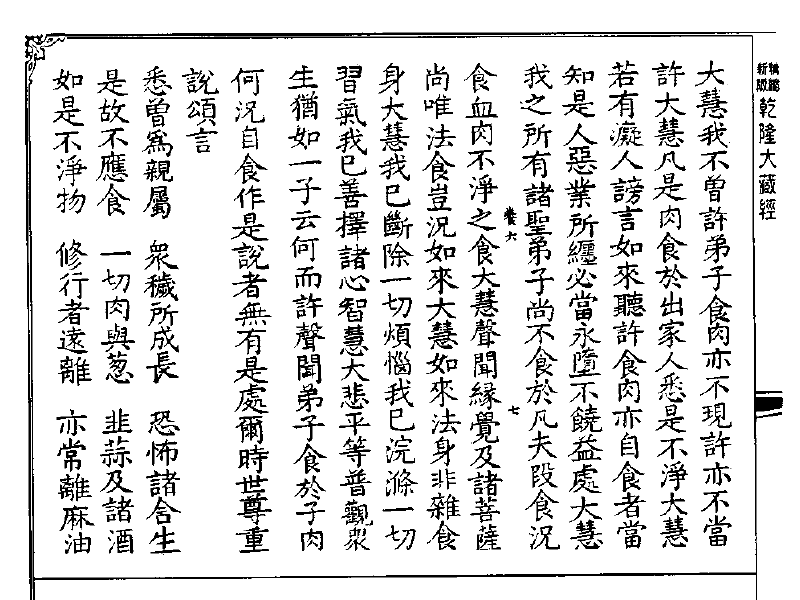 新編縮版 乾隆大藏經
大慧我不曾許弟子食肉亦不現許亦不當
許大慧凡是肉食於出家人悉是不淨大慧
若有癡人謗言如來聽許食肉亦自食者當
知是人惡業所纏必當永墮不饒益處大慧
我之所有諸聖弟子尚不食於凡夫段食況
卷六 七
食血肉不淨之食大慧聲聞緣覺及諸菩薩
尚唯法食豈況如來大慧如來法身非雜食
身大慧我已斷除一切煩惱我已浣滌一切
習氣我已善擇諸心智慧大悲平等普觀衆
生猶如一子云何而許聲聞弟子食於子肉
何況自食作是說者無有是處爾時世尊重
說頌言
悉曾爲親屬 衆穢所成長 恐怖諸含生
是故不應食 一切肉與葱 韭蒜及諸酒
如是不淨物 修行者遠離 亦常離麻油